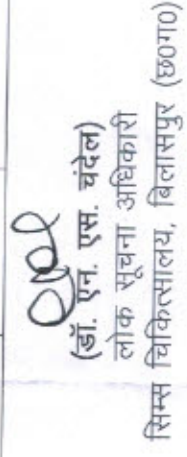 (डॉ. एन. एस. चंदेल)
लोक सूचना अधिकारी
सिम्स चिकित्सालय, बिलासपुर (छ0ग0)